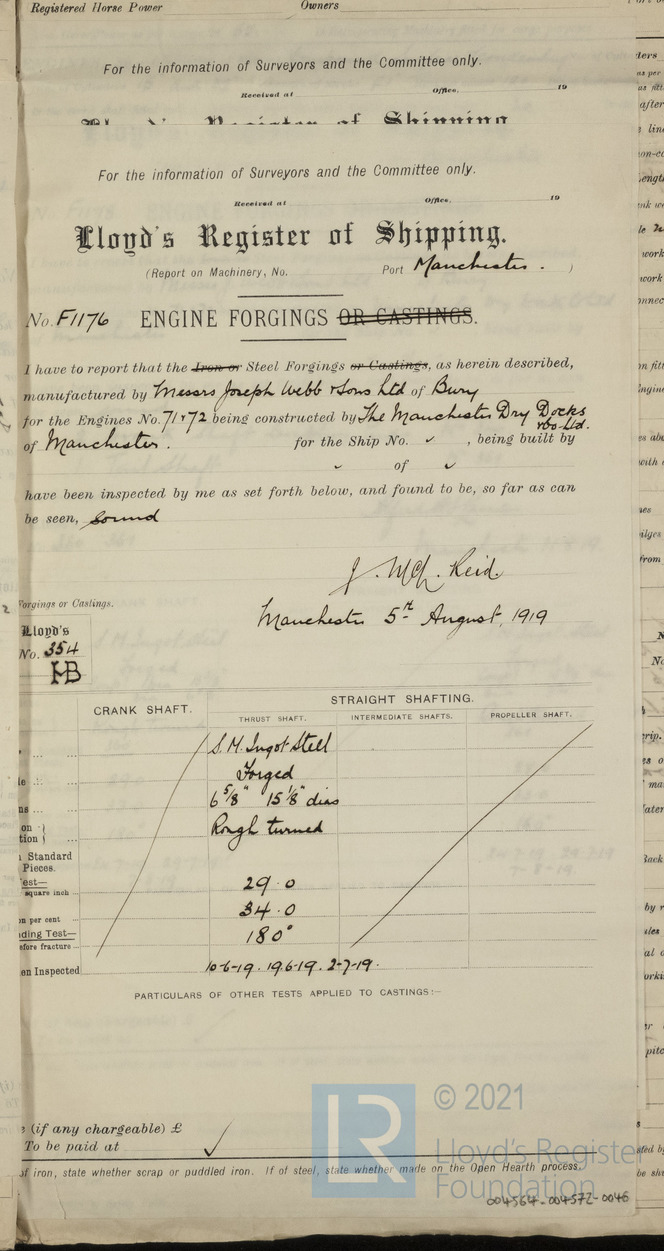 Registered Horse Power Owners
For the information of Surveyors and the Committee only.
Received at Office, 19
Lloyd's Register of Shipping
For the information of Surveyors and the Committee only.
Received at Office, 19
Lloyd's Register of Shipping.
(Report on Machinery, No. Port Manchester. )
No. F1176 ENGINE FORGINGS OR CASTINGS.
I have to report that the Iron or Steel Forgings or Castings, as herein described,
manufactured by Messrs Joseph Webb & Sons Ltd of Bury
for the Engines No. 71 & 72 being constructed by The Manchester Dry Docks
Co Ltd.
of Manchester. for the Ship No. ✓ , being built by
✓ of ✓
have been inspected by me as set forth below, and found to be, so far as can
be seen, sound
Reid
Manchester 5th August, 1919
Forgings or Castings.
Lloyd's
No. 354
HB
CRANK SHAFT. STRAIGHT SHAFTING.
THRUST SHAFT. INTERMEDIATE SHAFTS. PROPELLER SHAFT.
S. M. Ingot Steel
Forged
6 5/8" 15 1/8" dias
Rough turned
Standard
Pieces.
29.0
square inch
34.0
per cent
180°
Test—
fracture
Inspected 10-6-19. 19.6.19. 2-7-19.
PARTICULARS OF OTHER TESTS APPLIED TO CASTINGS:—
(if any chargeable) £
To be paid at ✓
of iron, state whether scrap or puddled iron. If of steel, state whether made on the Open Hearth process.
LR © 2021
Lloyd's Register
Foundation
004564-004572-0046